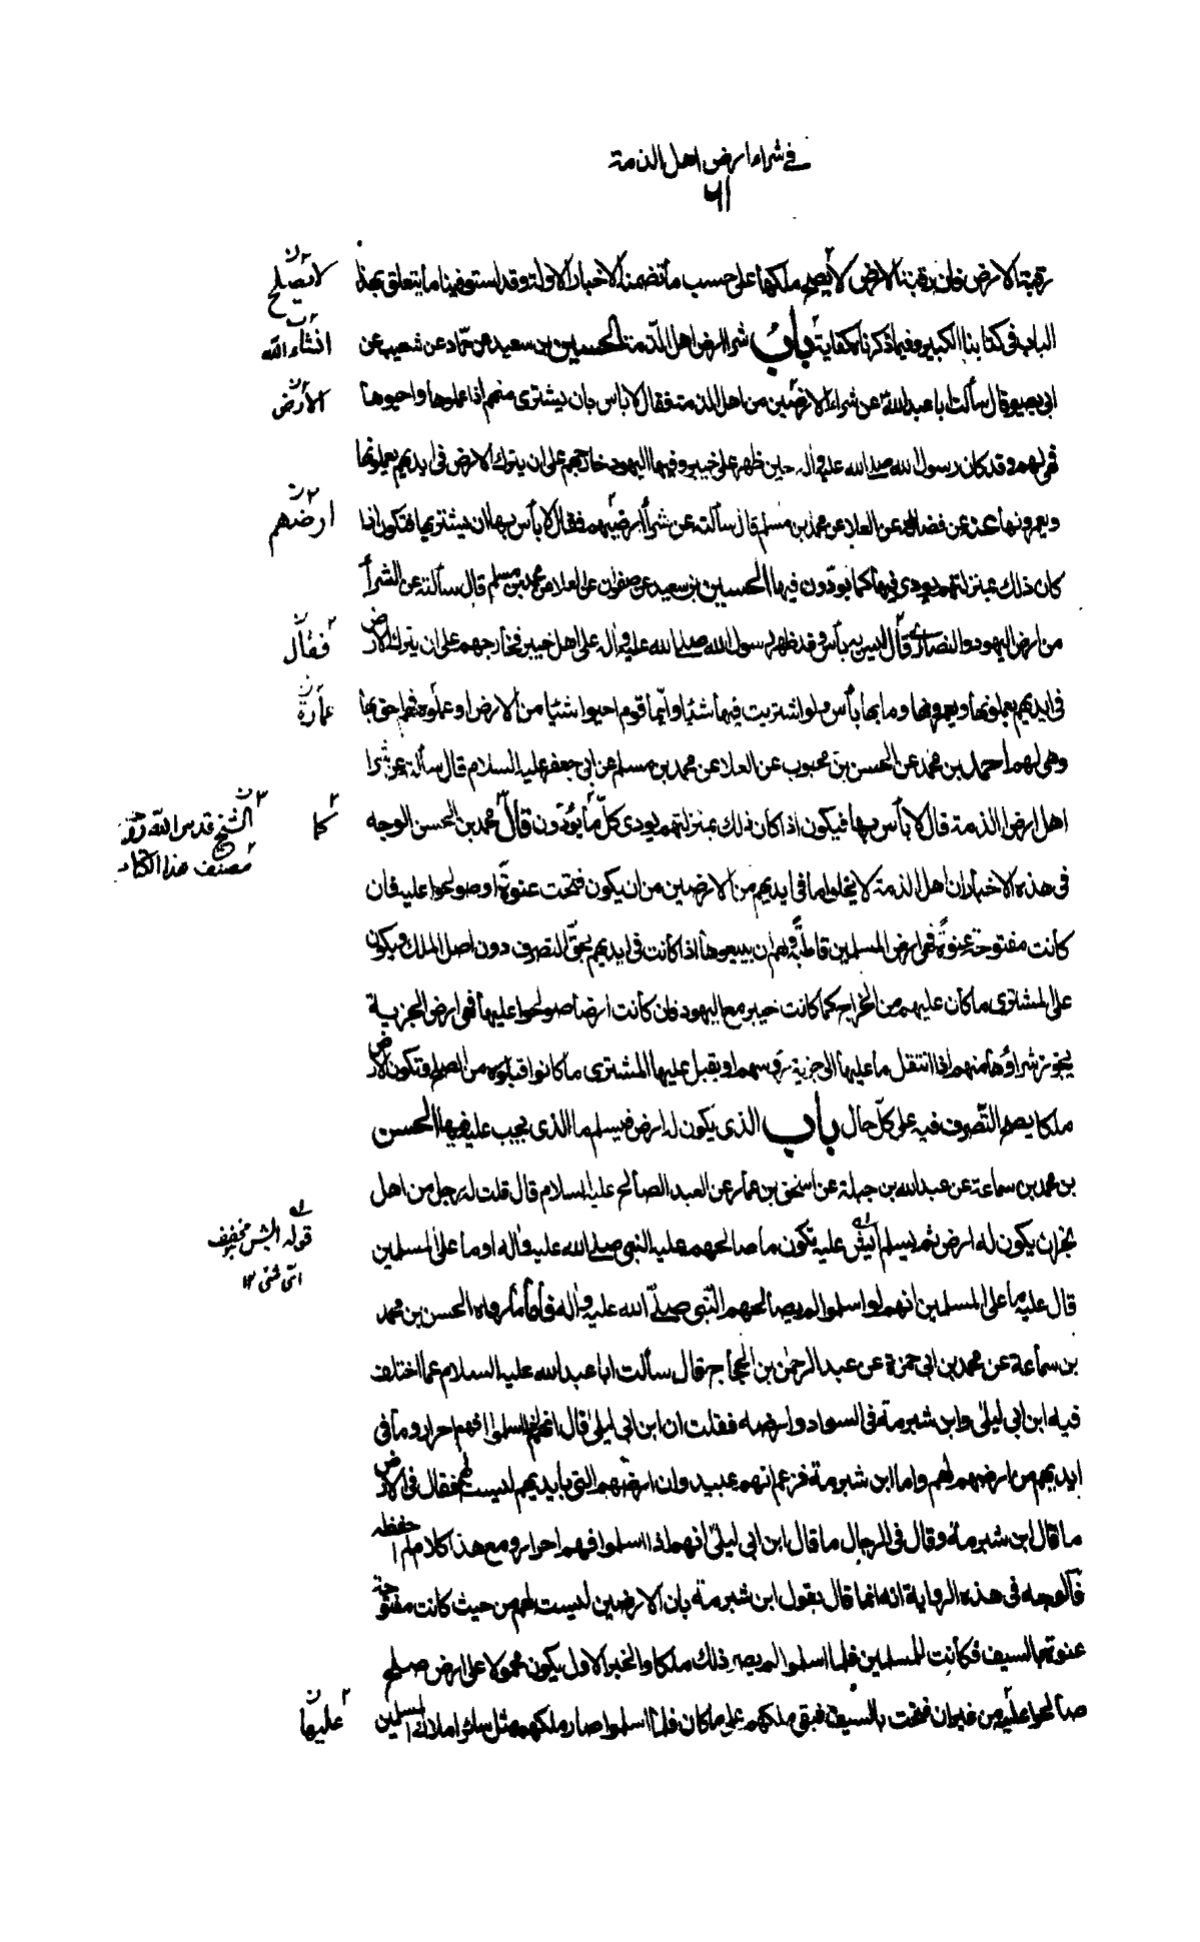 في شراء ارض اهل الذمة
٦١
رقبة الارض فان رقبة الارض لا يصح ملكها على حسب ما تضمنه الاخبار الاولة وقد استوفينا ما يتعلق بهذا
الباب في كتابنا الكبير وفيما ذكرناه كفاية باب شراء ارض اهل الذمة الحسين بن سعيد عن حماد عن شعيب عن
ابي بصير قال سألت ابا عبد الله عن شراء الارضين من اهل الذمة فقال لا باس بان يشترى منهم اذا عملوها واحيوها
فهي لهم وقد كان رسول الله صلى الله عليه واله حين ظهر على خيبر وفيها اليهود خارجهم على ان يترك الارض في ايديهم يعملونها
ويعمرونها عنه عن فضالة عن العلا عن محمد بن مسلم قال سألته عن شراء ارضيهم فقال لا بأس بها ان يشتريها فتكون اذا
كان ذلك بمنزلتهم يودي فيها كما يودون فيها الحسين بن سعيد عن صفوان عن العلا عن محمد بن مسلم قال سألته عن الشراء
من ارض اليهود والنصارى قال ليس به بأس وقد ظهر رسول الله صلى الله عليه واله على اهل خيبر فخارجهم على ان يترك الارض
في ايديهم يعملونها ويعمرونها وما بها بأس ولو اشتريت فيها شيئا وايما قوم احيوا شيئا من الارض او عملوه فهم احق بها
وهي لهم احمد بن محمد عن الحسن بن محبوب عن العلا عن محمد بن مسلم عن ابي جعفر عليه السلام قال سألته عن شرا
اهل ارض الذمة قال لا بأس بها فيكون اذا كان ذلك بمنزلتهم يودى كل ما يودون قال محمد بن الحسن الوجه
في هذه الاخبار ان اهل الذمة لا يخلو ما في ايديهم من الارضين من ان يكون فتحت عنوة او صولحوا عليه فان
كانت مفتوحة عنوة فهي ارض المسلمين قاطبة ولهم ان يبيعوها اذا كانت في ايديهم بحق التصرف دون اصل الملك ويكون
على المشتري ما كان عليهم من الخراج كما كانت خيبر مع اليهود فان كانت ارضا صولحوا عليها فهي ارض الجزية
يجوز شراؤها منهم اذا انتقل ما عليها الى جزية رؤسهم او يقبل عليها المشترى ما كانوا قبلوه من الصلح وتكون الارض
ملكا يصح التصرف فيه على كل حال باب الذي يكون له ارض فيسلم ما الذي يجب عليه فيها الحسن
بن محمد بن سماعة عن عبد الله بن جبلة عن اسحق بن عمار عن العبد الصالح عليه السلام قال قلت له رجل من اهل
نجران يكون له ارض ثم يسلم ايش عليه يكون ما صالحهم عليه النبي صلى الله عليه واله او ما على المسلمين
قال عليه ما على المسلمين انهم لو اسلموا لم يصالحهم النبي صلى الله عليه واله فاما ما رواه الحسن بن محمد
بن سماعة عن محمد بن ابي حمزة عن عبد الرحمن بن الحجاج قال سألت ابا عبد الله عليه السلام عما اختلف
فيه ابن ابي ليلى وابن شبرمة في السواد وارضه فقلت ان ابن ابي ليلى قال انهم اذا اسلموا فهم احرار وما في
ايديهم من ارضهم لهم واما ابن شبرمة فزعم انهم عبيد وان ارضهم التي بايديهم ليست لهم فقال في الارض
ما قال ابن شبرمة وقال في الرجال ما قال ابن ابي ليلى انهم اذا اسلموا فهم احرار ومع هذا كلام لم احفظه
فالوجه في هذه الرواية انه انما قال بقول ابن شبرمة بان الارضين ليست لهم من حيث كانت مفتوحة
عنوة بالسيف فكانت للمسلمين فلما اسلموا لم يصر ذلك ملكا والخبر الاول يكون محمولا على ارض صلح
صالحوا عليه من غير ان فتحت بالسيف فبقي ملكهم على ما كان فلما اسلموا صار ملكهم مثل سائر املاك المسلمين
لا يصلح
انشاء الله
الارض
ارضهم
فقال
عمارة
كما
الشيخ قدس الله روحه
مصنف هذا الكتاب
قوله ايش مخفف
اي شئ ١٢
عليها